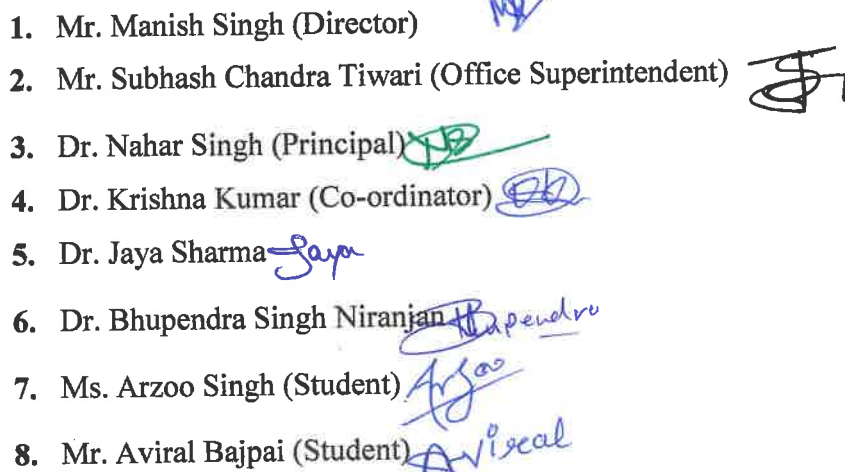 1. Mr. Manish Singh (Director)
2. Mr. Subhash Chandra Tiwari (Office Superintendent)
3. Dr. Nahar Singh (Principal)
4. Dr. Krishna Kumar (Co-ordinator)
5. Dr. Jaya Sharma Jaya
6. Dr. Bhupendra Singh Niranjan Bhupendra
7. Ms. Arzoo Singh (Student) Arzoo
8. Mr. Aviral Bajpai (Student) Aviral